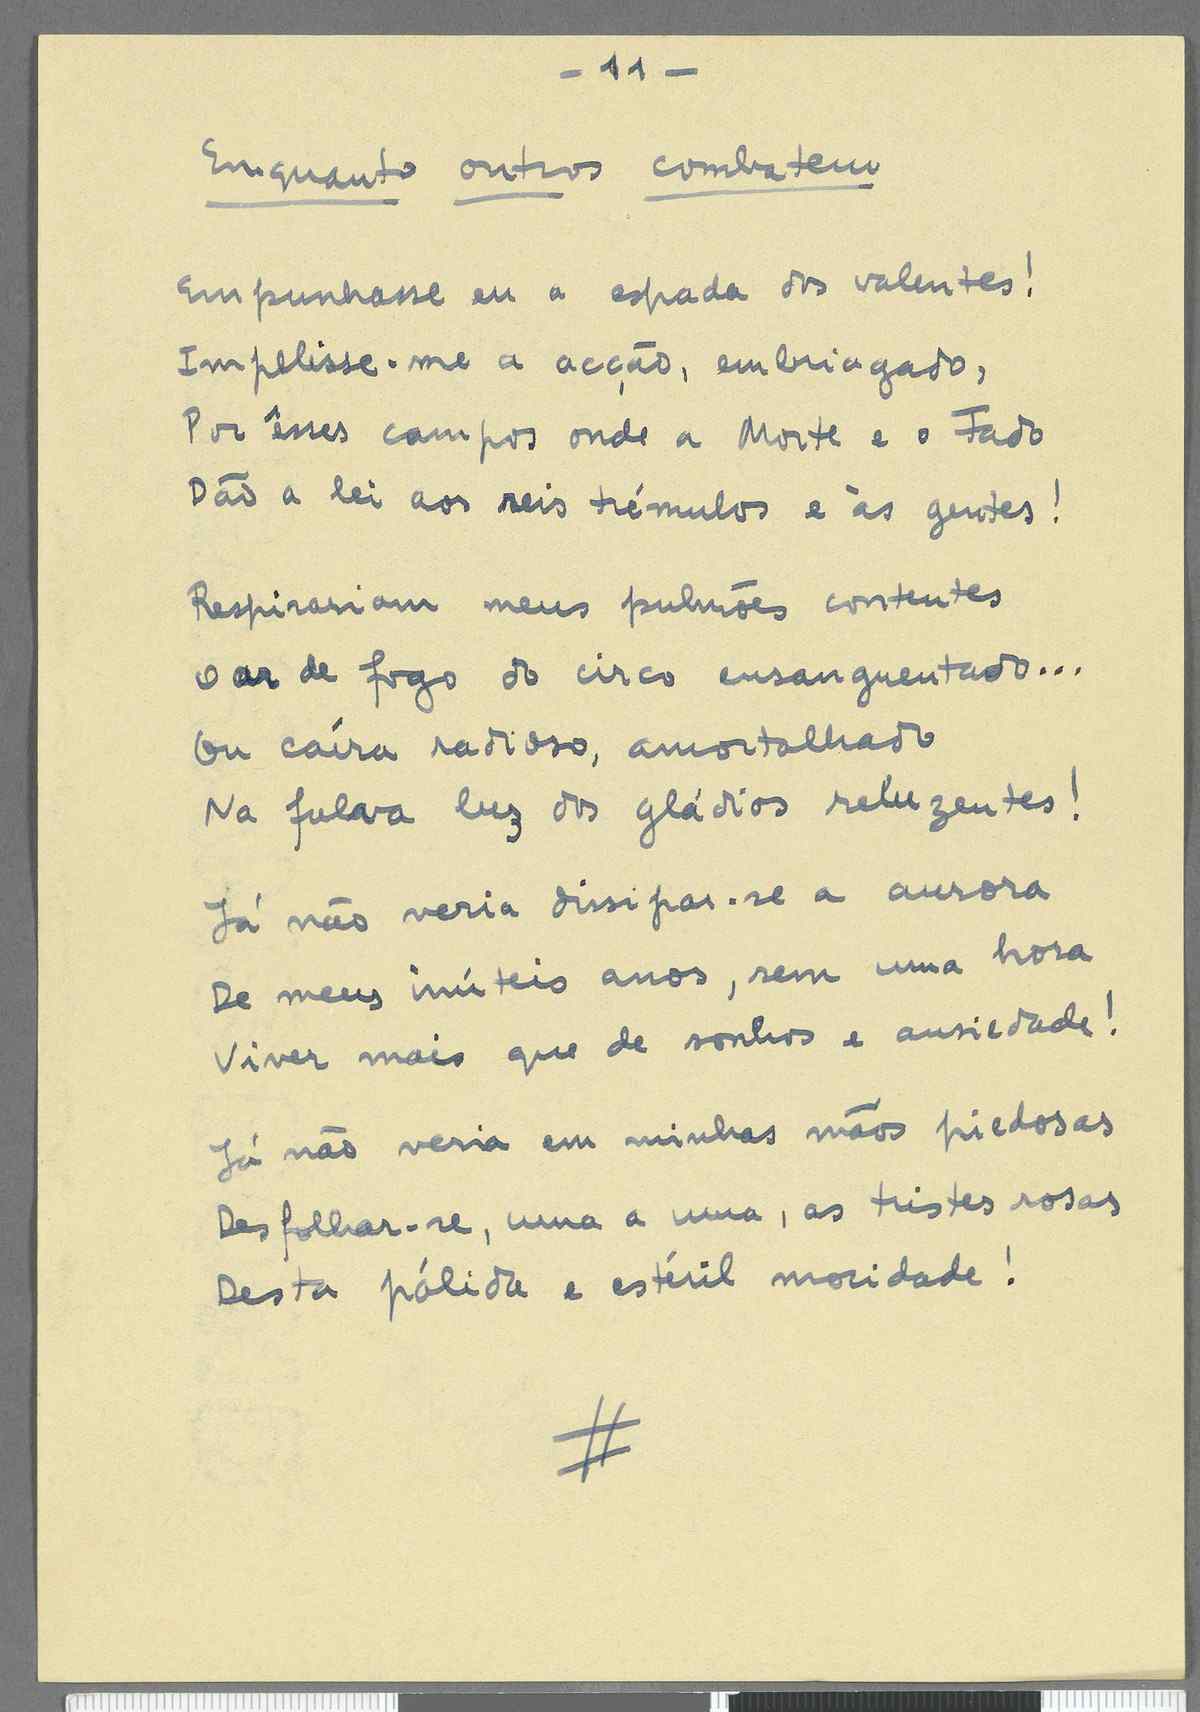 - 11 -
Emquanto outros combatem
Empunhasse eu a espada dos valentes!
Impelisse-me a acção, embriagado,
Por êsses campos onde a Morte e o Fado
Dão a lei aos reis trémulos e às gentes!
Respirariam meus pulmões contentes
O ar de fogo do circo ensanguentado...
Ou caíra radioso, amortalhado
Na fulva luz dos gládios reluzentes!
Já não veria dissipar-se a aurora
De meus inúteis anos, sem uma hora
Viver mais que de sonhos e ansiedade!
Já não veria em minhas mãos piedosas
Desfolhar-se, uma a uma, as tristes rosas
Desta pálida e estéril mocidade!
#